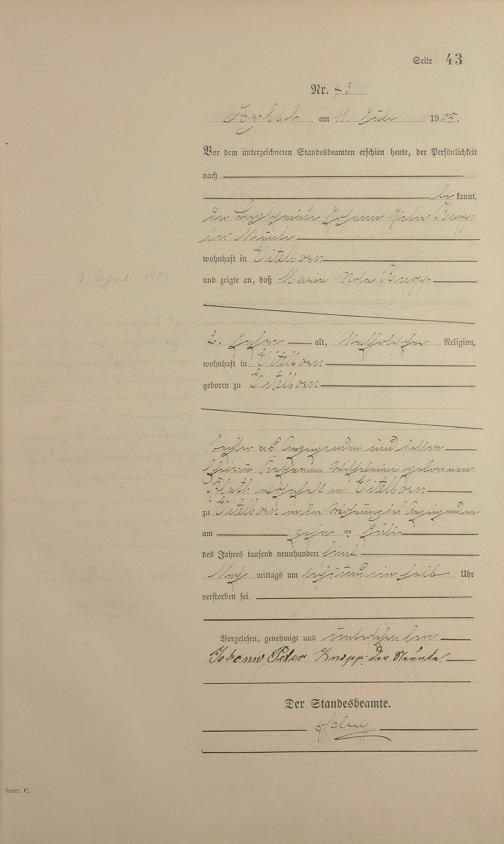 Seite 43
Nr. 43
Arzbach am 11. Juli 1905.
Vor dem unterzeichneten Standesbeamten erschien heute, der Persönlichkeit
nach
be kannt,
der Johann Peter Knopp
der Neunte
wohnhaft in Eitelborn
und zeigte an, daß Maria Rosa Knopp
7. April 1903
2 Jahre alt, katholischer Religion,
wohnhaft in Eitelborn
geboren zu Eitelborn
Tochter des Anzeigenden und dessen
Ehefrau Katharina Wilhelmine geborenen
wohnhaft in Eitelborn
zu Eitelborn in der Wohnung des Anzeigenden
am zehn ten Juli
des Jahres tausend neunhundert fünf
Nach mittags um sechs und ein halb Uhr
verstorben sei
Vorgelesen, genehmigt und unterschrieben
Johann Peter Knopp der Neunte
Der Standesbeamte.
Form. C.